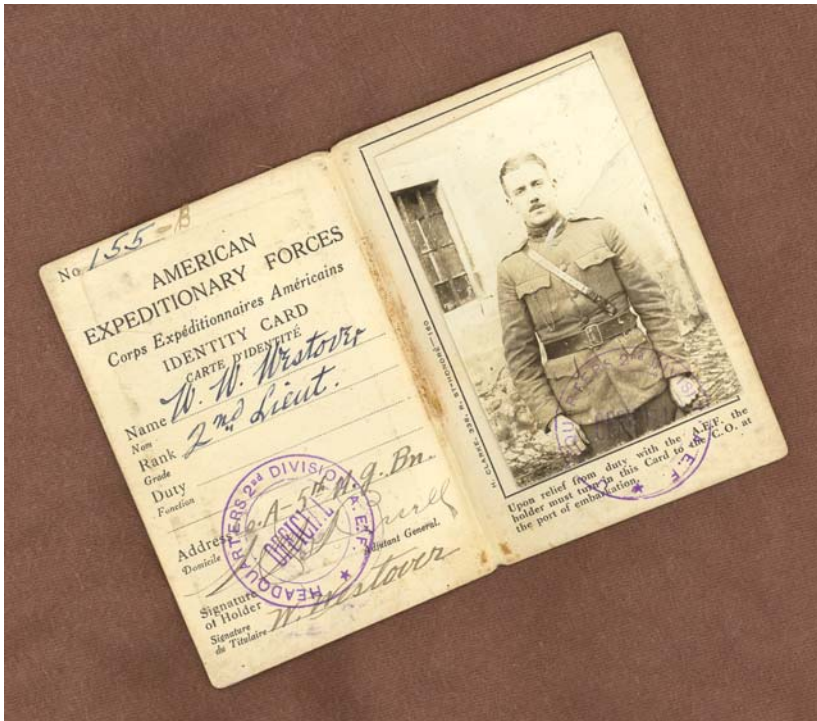 No 155-B
AMERICAN
EXPEDITIONARY FORCES
Corps Expéditionnaires Américains
IDENTITY CARD
CARTE D'IDENTITÉ
Name W. W. Westover
Nom
Rank 2nd Lieut.
Grade
Duty
Fonction
Address A-5th M.G. Bn.
Domicile
Adjutant General.
Signature
of Holder
Signature
du Titulaire W. Westover
HEADQUARTERS 2nd DIVISION A.E.F.
OFFICIAL
H. CLARKE, 338, R. ST-HONORÉ
Upon relief from duty with the A.E.F. the
holder must turn in this Card to the C.O. at
the port of embarkation.
A.E.F.